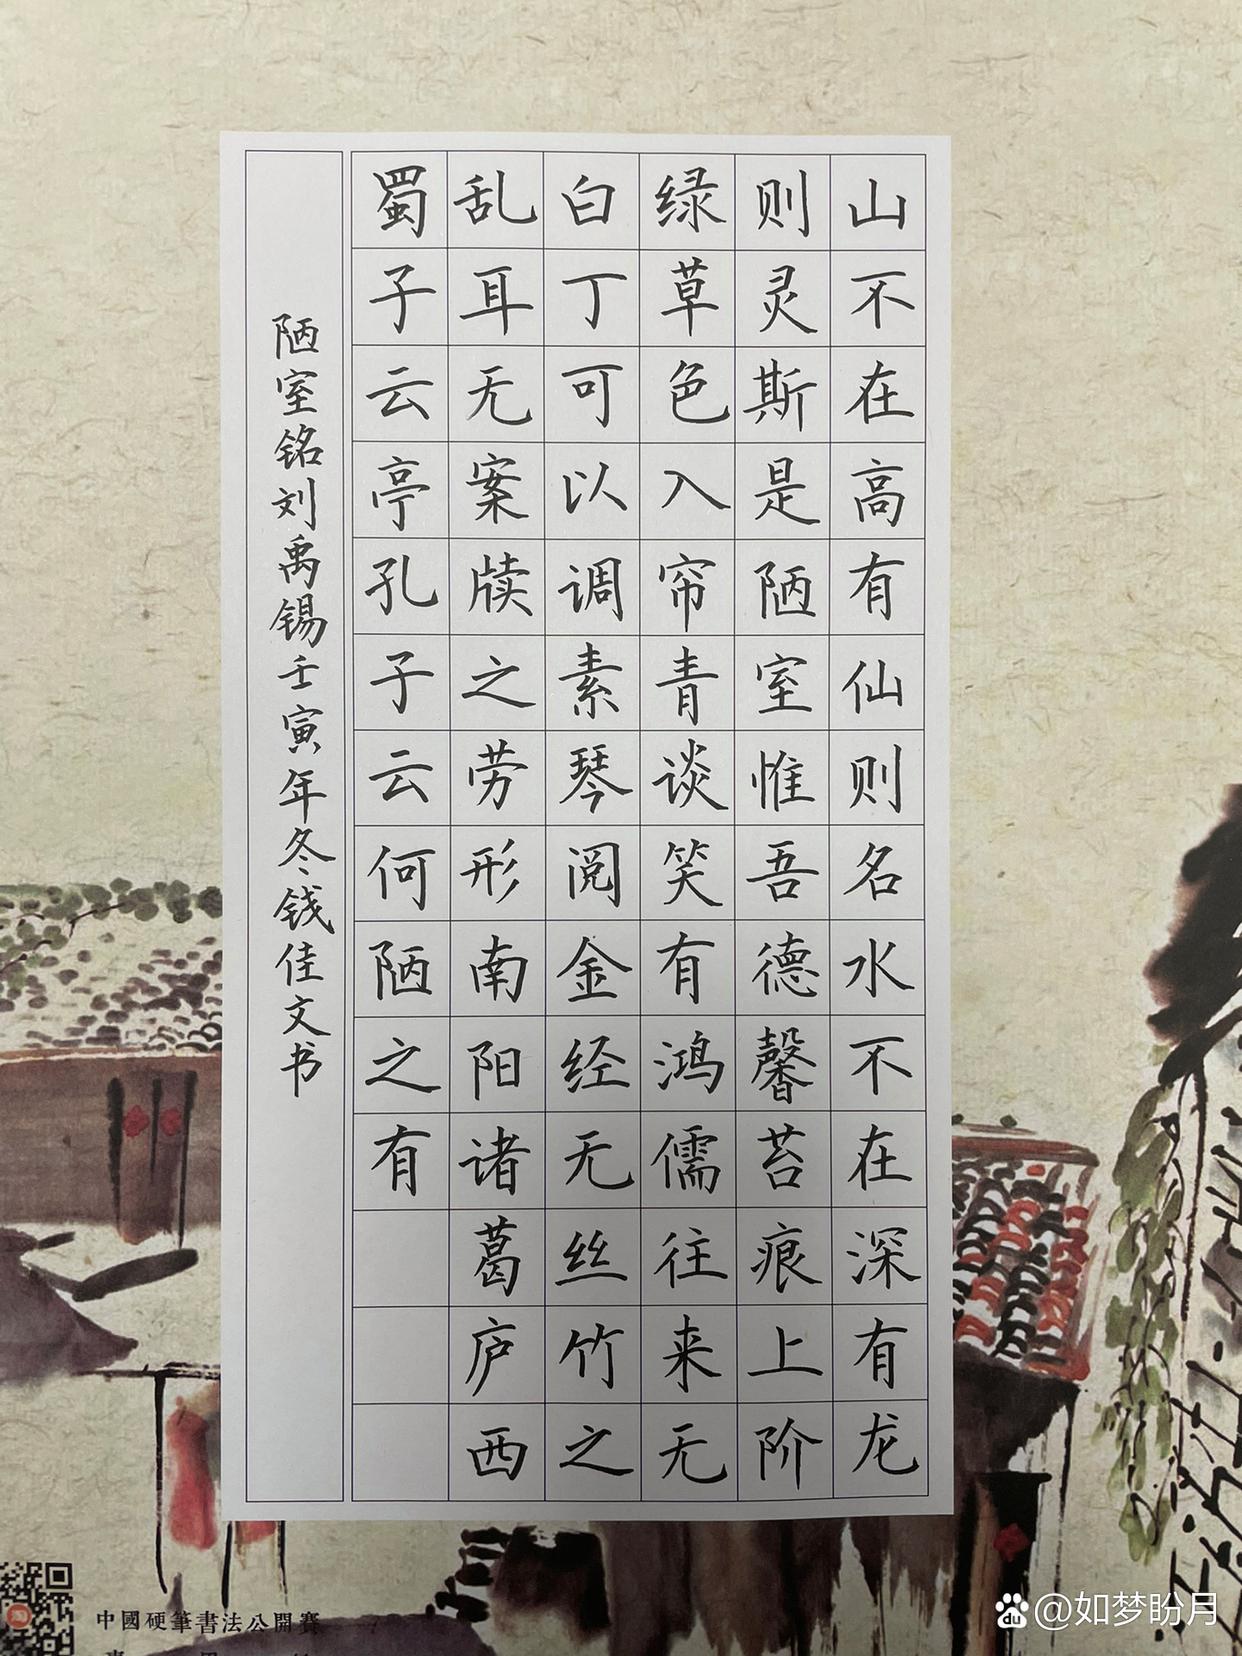 山不在高有仙则名水不在深有龙
则灵斯是陋室惟吾德馨苔痕上阶
绿草色入帘青谈笑有鸿儒往来无
白丁可以调素琴阅金经无丝竹之
乱耳无案牍之劳形南阳诸葛庐西
蜀子云亭孔子云何陋之有
陋室铭刘禹锡壬寅年冬钱佳文书
中國硬筆書法公開賽
@如梦盼月